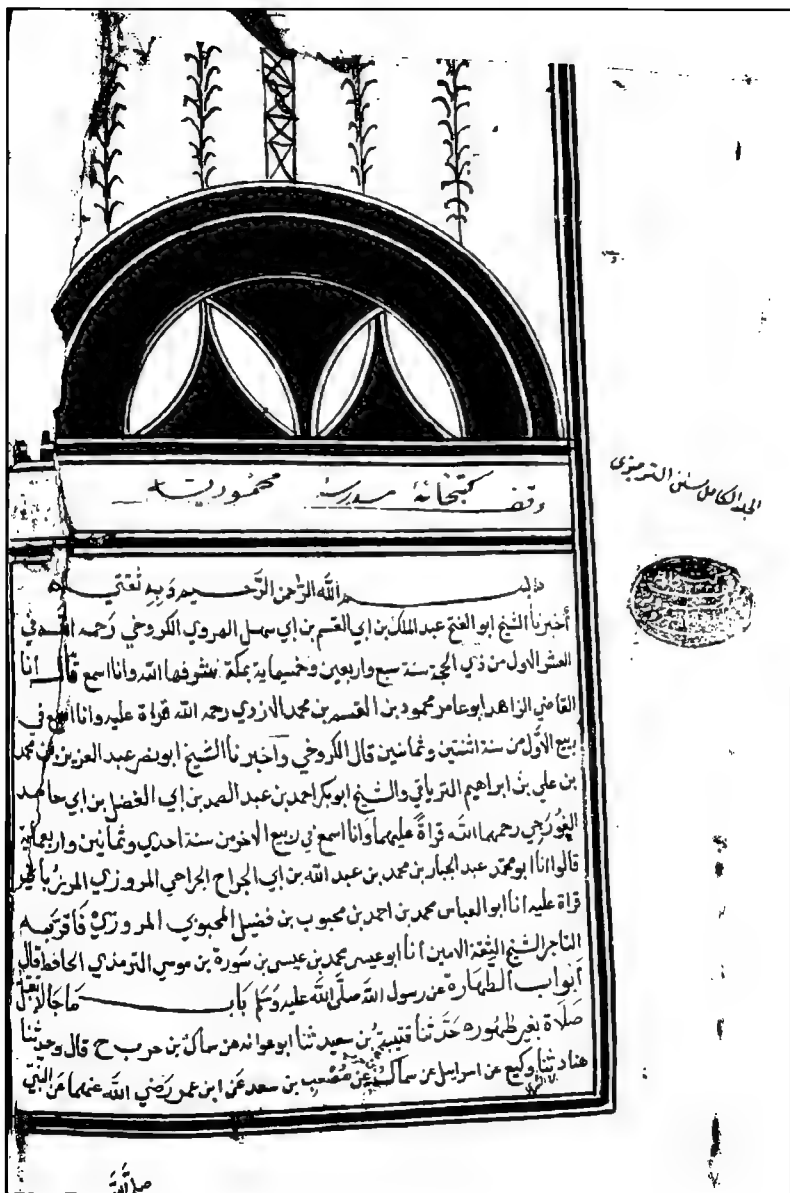 وقف كتبخانۀ مدرسۀ محموديه
المجلد الكامل سنن الترميزى
بسم الله الرحمن الرحيم وبه ثقتي
أخبرنا الشيخ ابو الفتح عبد الملك بن ابي القسم بن ابي سهل الهروي الكروخي رحمه الله في
العشر الاول من ذي الحجة سنة سبع واربعين وخمسماية بمكة شرفها الله وانا اسمع قال أنا
القاضي الزاهد ابو عامر محمود بن القسم بن محمد الازدي رحمه الله قراة عليه وانا اسمع في
ربيع الاول من سنة اثنتين وثمانين قال الكروخي وأخبرنا الشيخ ابو نصر عبد العزيز بن محمد
بن علي بن ابراهيم الترياقي والشيخ ابو بكر احمد بن عبد الصمد بن ابي الفضل بن ابي حامد
الغورجي رحمهما الله قراةً عليهما وانا اسمع في ربيع الاخر من سنة احدي وثمانين واربعماية
قالوا انا ابو محمد عبد الجبار بن محمد بن عبد الله بن ابي الجراح الجراحي المروزي المرزباني
قراة عليه انا ابو العباس محمد بن احمد بن محبوب بن فضيل المحبوبي المروزي فأقر به
التاجر الشيخ الثقة الامين أنا ابو عيسى محمد بن عيسى بن سورة بن موسي الترمذي الحافظ قال
أبواب الطهارة عن رسول الله صلى الله عليه وسلم باب ما جا لا تقبل
صلاة بغير طهور حدثنا قتيبة بن سعيد ثنا ابو عوانه عن سماك بن حرب ح قال وحدثنا
هناد ثنا وكيع عن اسرايل عن سماك عن مصعب بن سعد عن ابن عمر رضي الله عنهما عن النبي
صلى الله